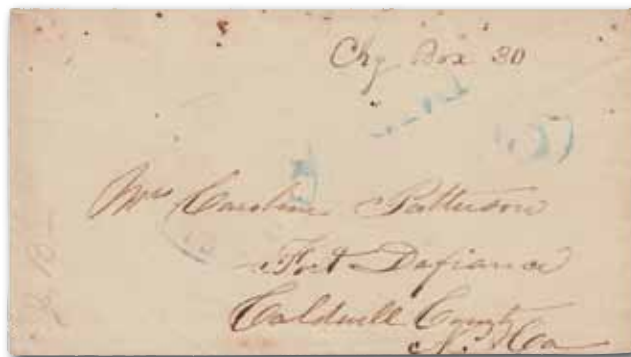 Chg Box 30
Mrs Caroline Patterson
Fort Defiance
Caldwell County
N. Ca